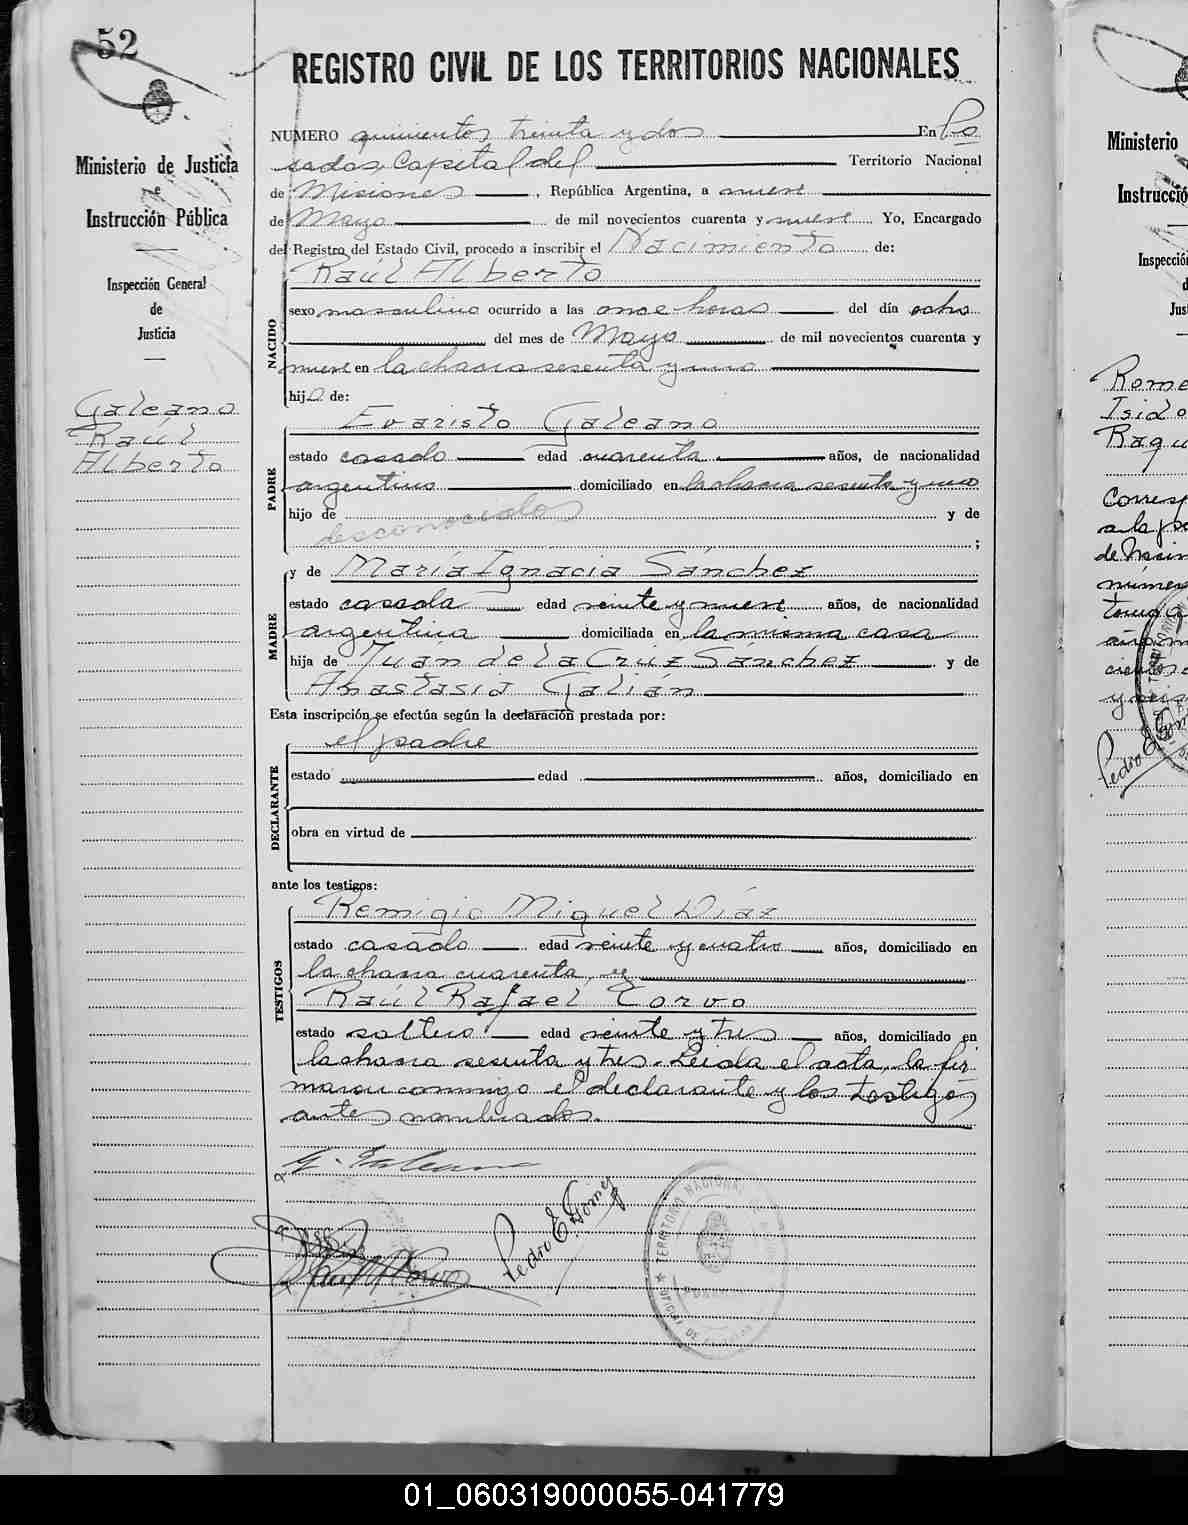 52
REGISTRO CIVIL DE LOS TERRITORIOS NACIONALES
Ministerio de Justicia
e
Instrucción Pública
Inspección General
de
Justicia
Galeano
Raúl
Alberto
NUMERO quinientos treinta y dos En Po
sadas, Capital del Territorio Nacional
de Misiones, República Argentina, a nueve
de Mayo de mil novecientos cuarenta y nueve Yo, Encargado
del Registro del Estado Civil, procedo a inscribir el Nacimiento de:
NACIDO
Raúl Alberto
sexo masculino ocurrido a las once horas del día ocho
del mes de Mayo de mil novecientos cuarenta y
nueve en la chacra sesenta y uno
hijo de:
PADRE
Evaristo Galeano
estado casado edad cuarenta años, de nacionalidad
argentino domiciliado en la chacra sesenta y uno
hijo de y de
desconocidos ;
MADRE
y de María Ignacia Sánchez
estado casada edad veinte y nueve años, de nacionalidad
argentina domiciliada en la misma casa
hija de Juan de la Cruz Sánchez y de
Anastasia Galián
Esta inscripción se efectúa según la declaración prestada por:
DECLARANTE
el padre
estado edad años, domiciliado en
obra en virtud de
ante los testigos:
TESTIGOS
Remigio Miguel Díaz
estado casado edad veinte y cuatro años, domiciliado en
la chacra cuarenta, y
Raúl Rafael Torvo
estado soltero edad veinte y tres años, domiciliado en
la chacra sesenta y tres. Leida el acta, la fir
maron conmigo el declarante y los testigos
antes nombrados.
Pedro E. Gomez
TERRITORIO NACIONAL
Ministerio
Instrucció
Inspecció
d
Jus
Rome
Isido
Raqu
Corresp
a la
de Nacim
númer
tomo
año m
cientos
y seis
Pedro E. Gom
01_060319000055-041779